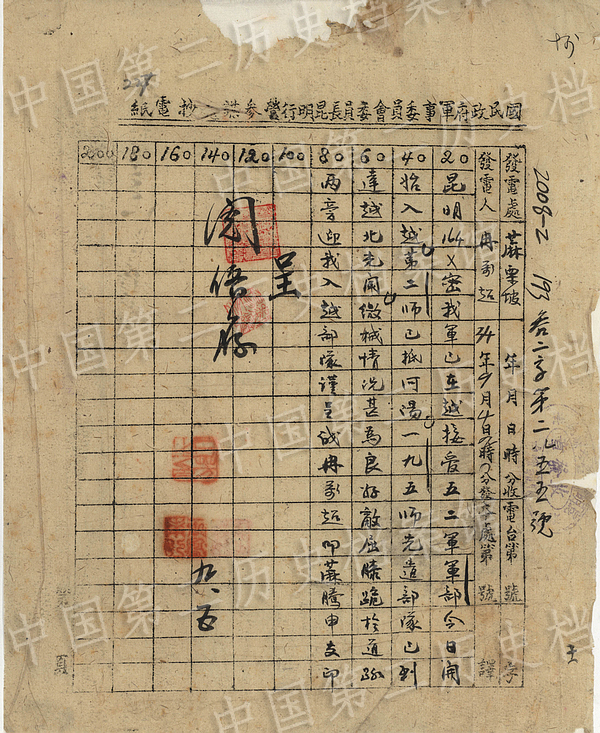 國民政府軍事委員會委員長昆明行營參謀抄電紙
2008-2 193
參二字第二五五號
發電處 蔴栗坡 年 月 日 時 分收電台第 號 字
發電人 冉 超 34年9月4日 時 分發 處第 號 譯
20 昆明164X密我軍已在越接受五二軍軍部今日開
40 始入越第二師已抵河湯一九五師先遣部隊已到
60 達越北先開繳械情况甚為良好敵屈膝跪於道路
80 兩旁迎我入越部隊謹呈 冉 超叩蔴騰申支印
100
120 呈
140 閱
160
180
200
九、五
頁
中国第二历史档案馆